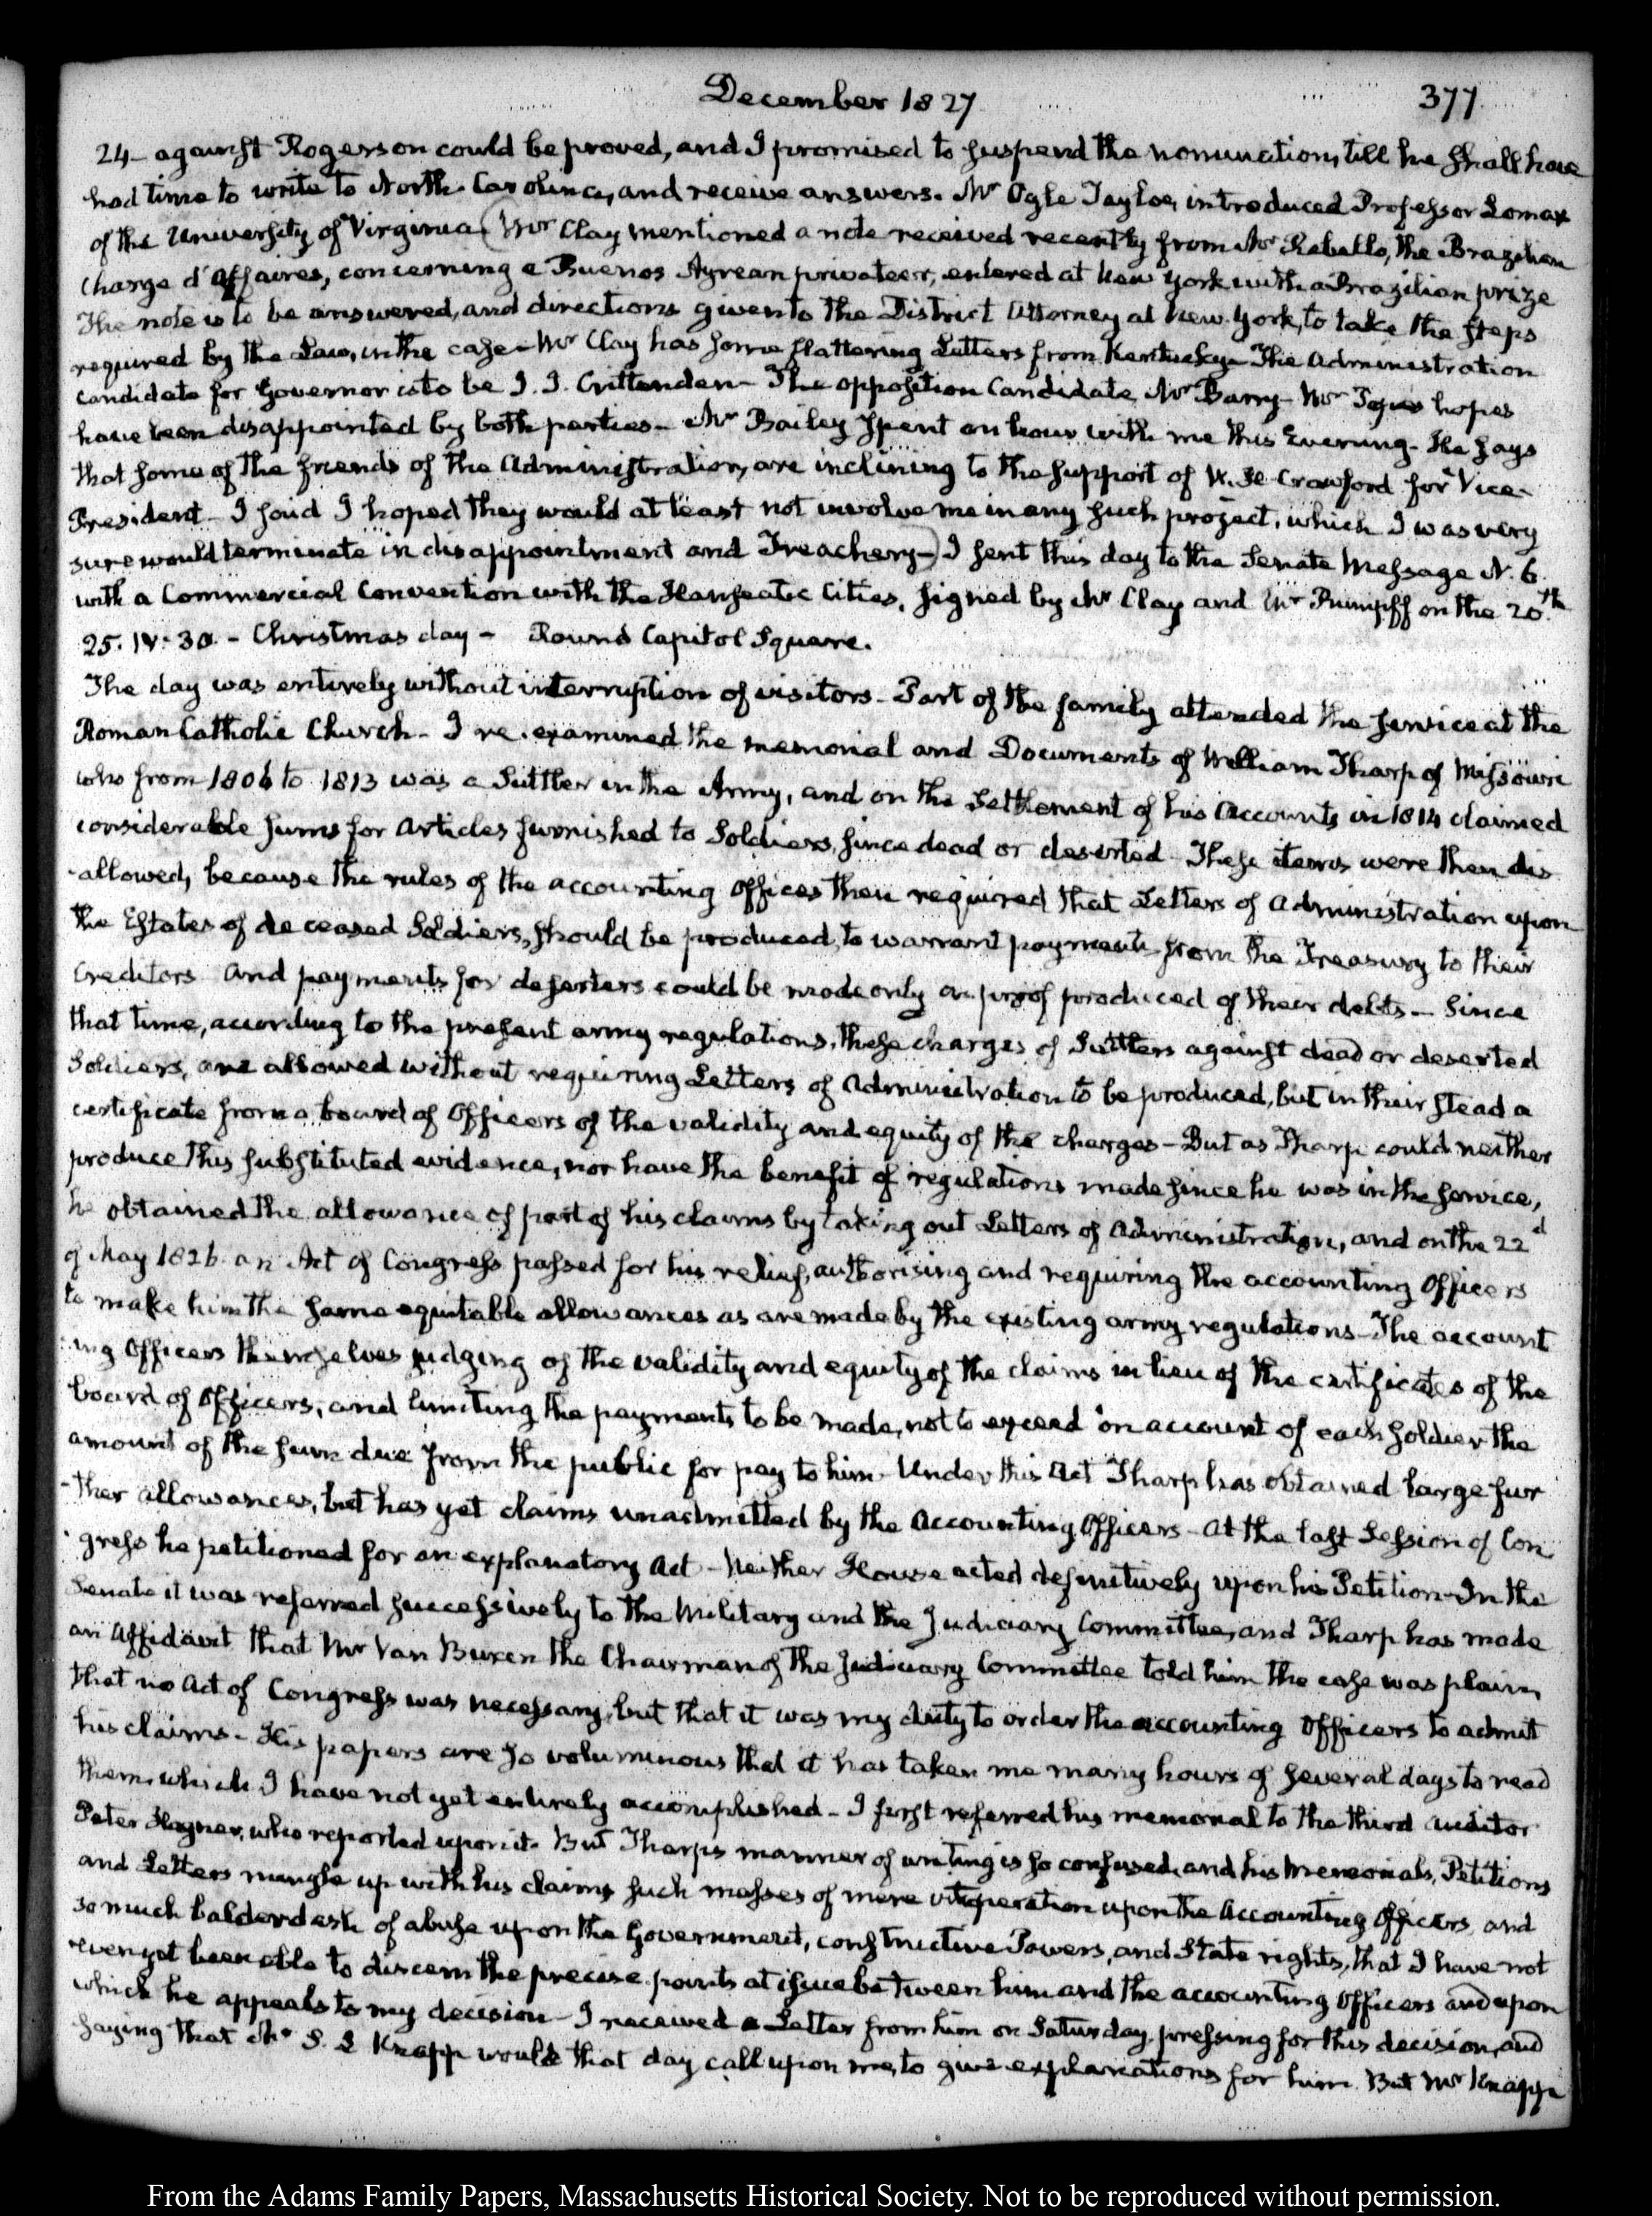 December 1827
377
24 – against Rogerson could be proved, and I promised to suspend the nomination, till he shall have
had time to write to North-Carolina, and receive answers. Mr Ogle Tayloe, introduced Professor Lomax
of the University of Virginia (Mr Clay mentioned a note received recently from Mr Rebello, the Brazilian
Chargé d'Affaires, concerning a Buenos Ayrean privateer, entered at New York with a Brazilian prize
The note is to be answered, and directions given to the District Attorney at New-York, to take the steps
required by the Law, in the case – Mr Clay has some flattering Letters from Kentucky – The Administration
candidate for Governor is to be J. J. Crittenden – The opposition Candidate, Mr Barry – Mr hopes
have been disappointed by both parties – Mr Bailey spent an hour with me this Evening – He says
that some of the friends of the Administration, are inclining to the support of W. H. Crawford for Vice-
President – I said I hoped they would at least not involve me in any such project, which I was very
sure would terminate in disappointment and Treachery –) I sent this day to the Senate Message N. 6.
with a Commercial Convention with the Hanseatic Cities, signed by Mr Clay and Mr Rumpff on the 20th
25. IV: 30 – Christmas day – Round Capitol Square.
The day was entirely without interruption of visitors – Part of the family attended the service at the
Roman Catholic Church – I re-examined the memorial and Documents of William Tharp of Missouri
who from 1806 to 1813 was a Suttler in the Army, and on the Settlement of his Accounts in 1814 claimed
considerable sums for articles furnished to Soldiers, since dead or deserted. These items were then dis
-allowed, because the rules of the accounting Offices then required that Letters of Administration upon
the Estates of deceased Soldiers, should be produced, to warrant payments from the Treasury to their
Creditors and payments for deserters could be made only on proof produced of their debts – Since
that time, according to the present army regulations, these charges of Suttlers against dead or deserted
Soldiers, are allowed without requiring Letters of Administration to be produced, but in their stead a
certificate from a board of Officers of the validity and equity of the charges – But as Tharp could neither
produce this substituted evidence, nor have the benefit of regulations made since he was in the service,
he obtained the allowance of part of his claims by taking out Letters of Administration, and on the 22d
of May 1826 an Act of Congress passed for his relief, authorising and requiring the accounting Officers
to make him the same equitable allowances as are made by the existing army regulations – The account
ing Officers themselves judging of the validity and equity of the claims in lieu of the certificates of the
board of Officers; and limiting the payments to be made, not to exceed on account of each Soldier the
amount of the sum due from the public for pay to him. Under this Act Tharp has obtained large fur
-ther allowances, but has yet claims unadmitted by the Accounting Officers – At the last Session of Con
gress he petitioned for an explanatory Act – Neither House acted definitively upon his Petition – In the
Senate it was referred successively to the Military and the Judiciary Committee, and Tharp has made
an Affidavit that Mr Van Buren the Chairman of the Judiciary Committee told him the case was plain,
that no Act of Congress was necessary, but that it was my duty to order the accounting Officers to admit
his claims – His papers are so voluminous that it has taken me many hours of several days to read
them, which I have not yet entirely accomplished – I first referred his memorial to the third Auditor
Peter Hagner, who reported upon it. But Tharp's manner of writing is so confused, and his Memorials, Petitions
and Letters mingle up with his claims such masses of mere vituperation upon the Accounting Officers, and
so much balderdash of abuse upon the Government, constructive Powers, and State rights, that I have not
even yet been able to discern the precise points at issue between him and the accounting Officers and upon
which he appeals to my decision – I received a Letter from him on Saturday, pressing for this decision, and
saying that Mr S. L Knapp would that day call upon me, to give explanations for him. But Mr Knapp
From the Adams Family Papers, Massachusetts Historical Society. Not to be reproduced without permission.